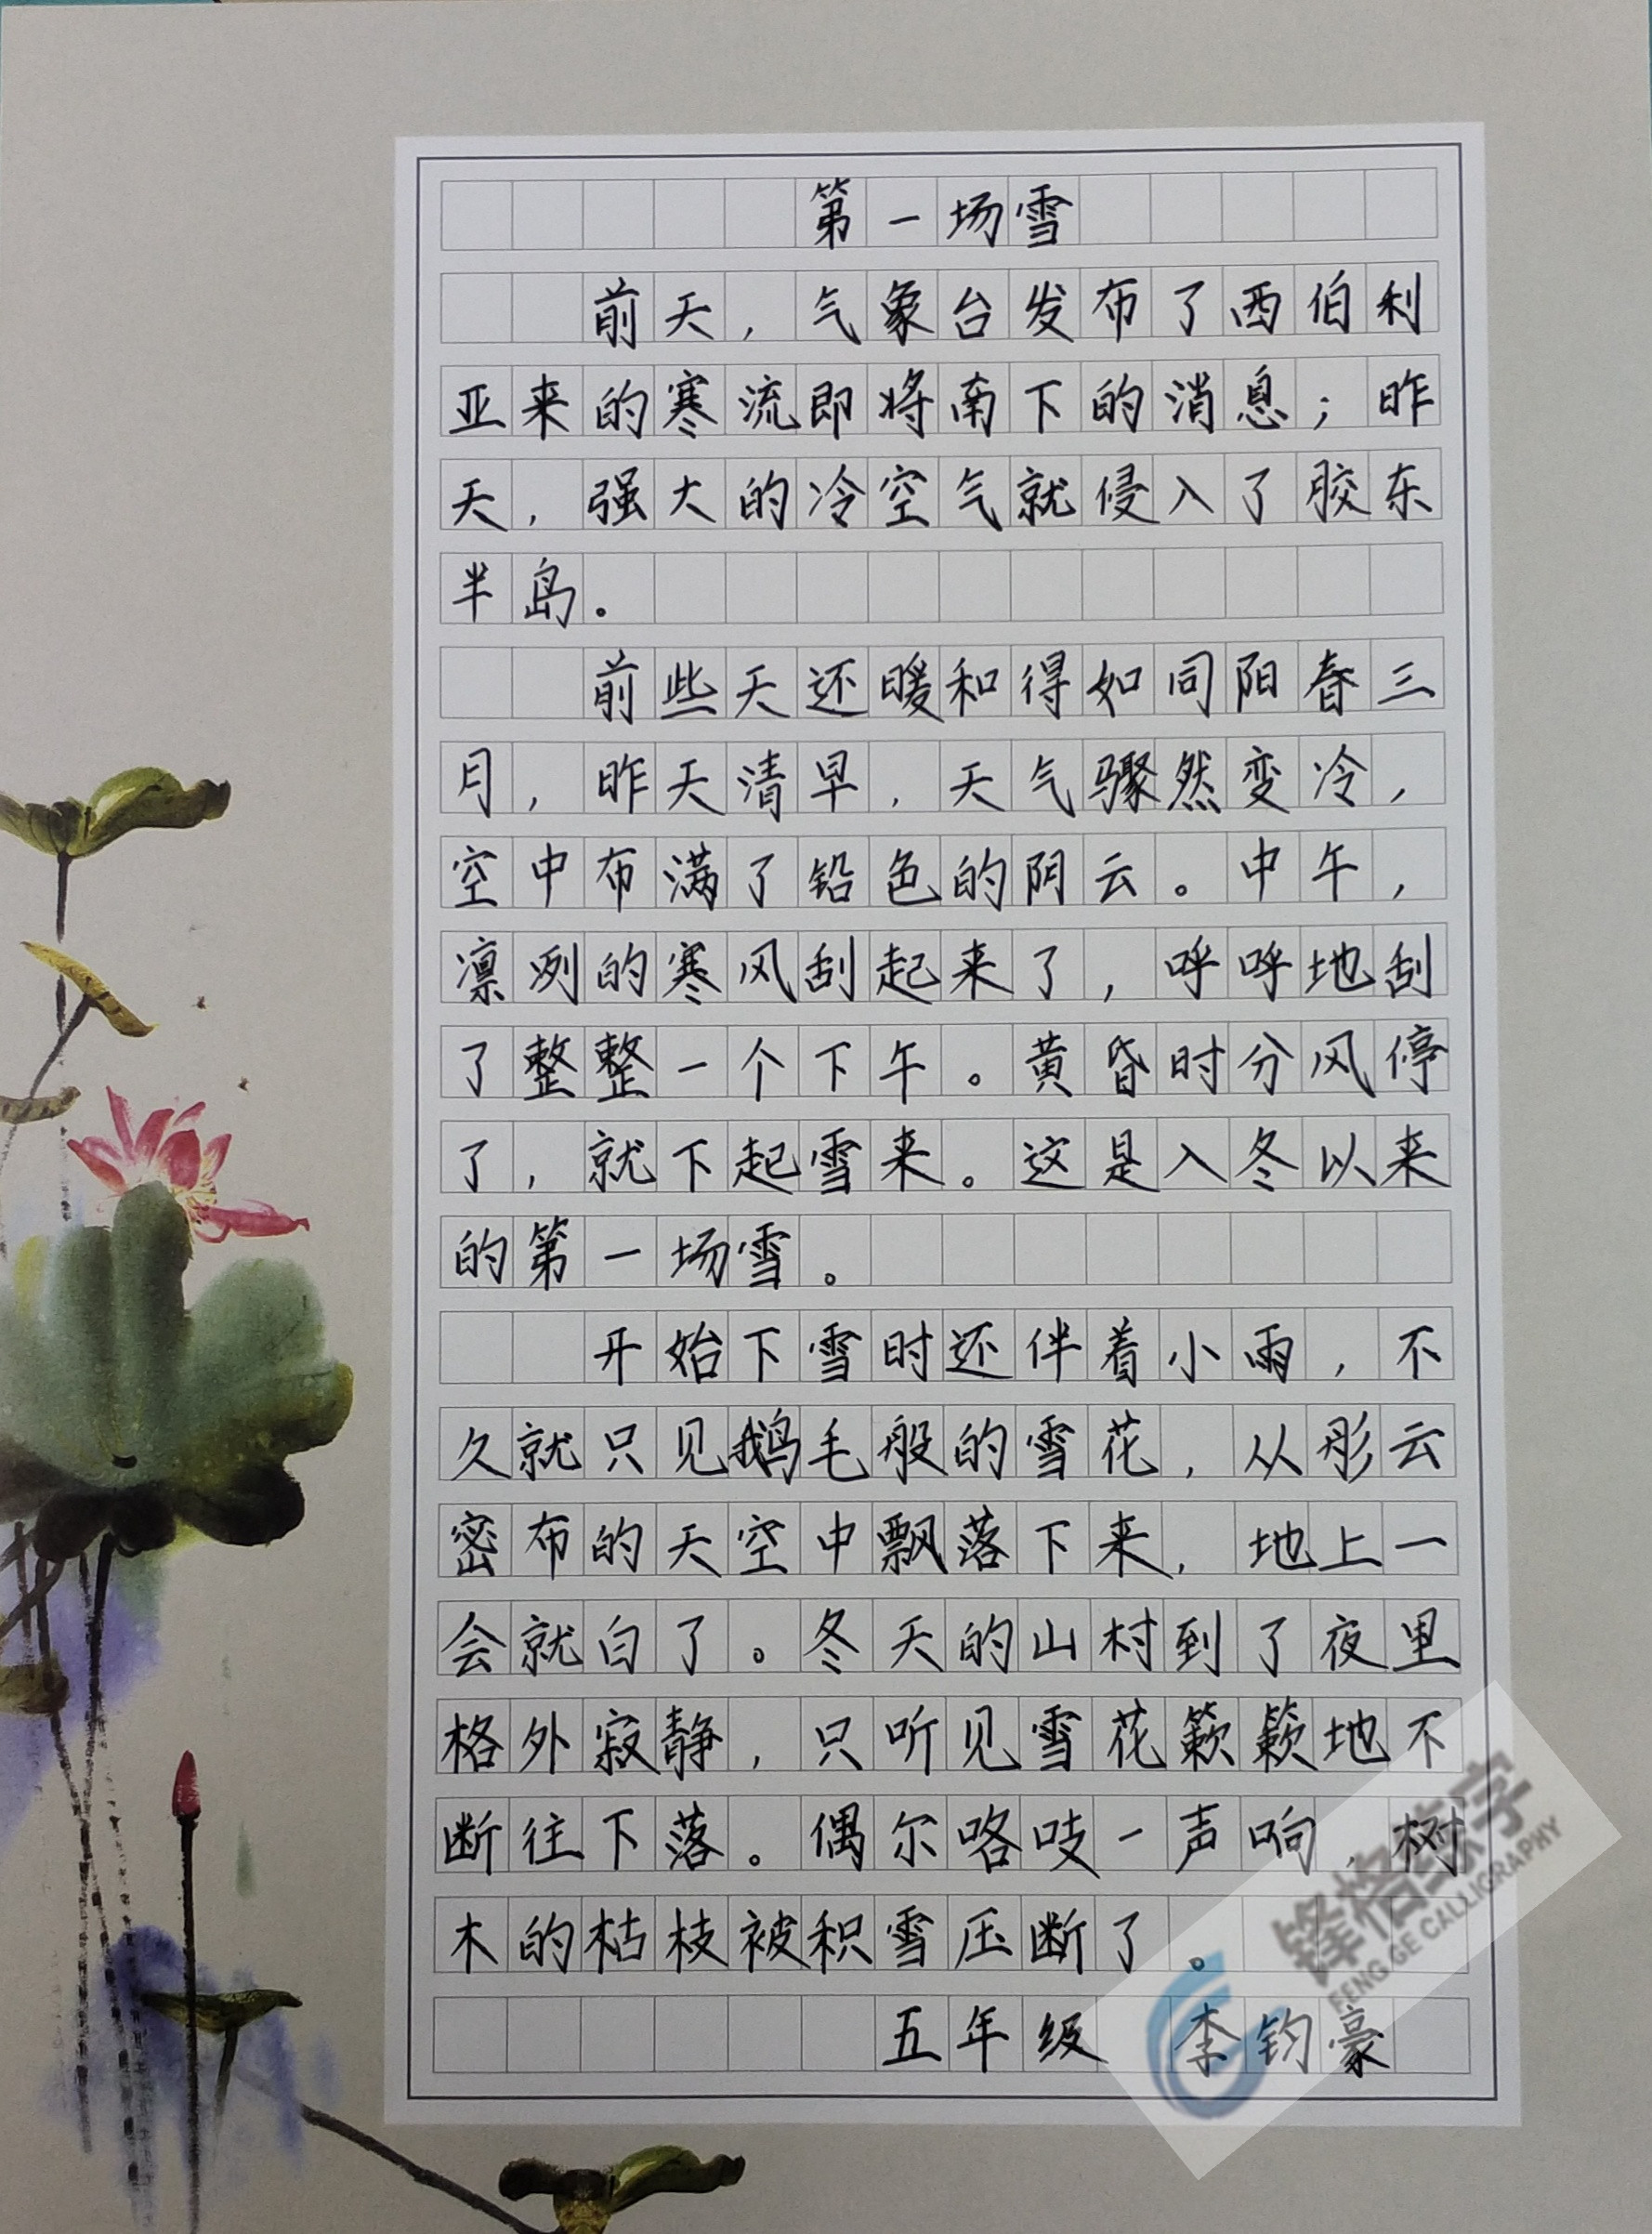 第一场雪
前天，气象台发布了西伯利
亚来的寒流即将南下的消息；昨
天，强大的冷空气就侵入了胶东
半岛。
前些天还暖和得如同阳春三
月，昨天清早，天气骤然变冷，
空中布满了铅色的阴云。中午，
凛冽的寒风刮起来了，呼呼地刮
了整整一个下午。黄昏时分风停
了，就下起雪来。这是入冬以来
的第一场雪。
开始下雪时还伴着小雨，不
久就只见鹅毛般的雪花，从彤云
密布的天空中飘落下来，地上一
会就白了。冬天的山村到了夜里
格外寂静，只听见雪花簌簌地不
断往下落。偶尔咯吱一声响，树
木的枯枝被积雪压断了。
五年级 李钧豪
锋格练字
FENG GE CALLIGRAPHY